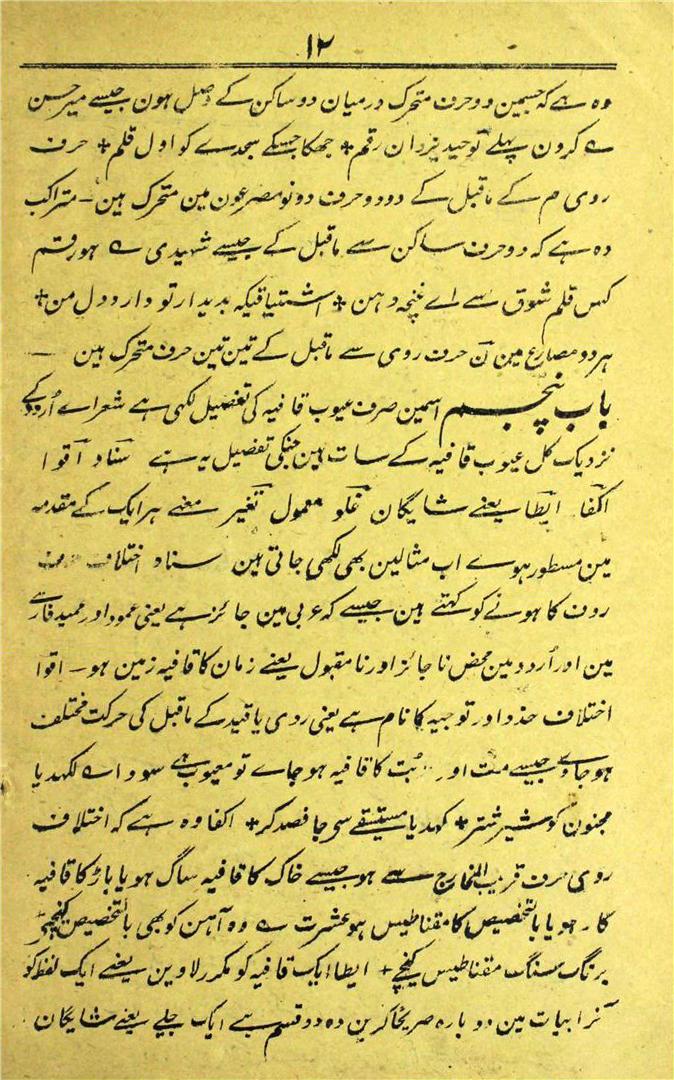 ۱۲
وہ ہے کہ جسمین دو حرف متحرک درمیان دو ساکن کے وصل ہون جیسے میر حسن
ے کرون پہلے توحید یزدان رقم + جھکا جسکے سجدے کو اول قلم + حرف
روی م کے ماقبل کے دو دو حرف دونو مصرعون مین متحرک ہین ۔ متراکب
وہ ہے کہ دو حرف ساکن سے ماقبل کے جیسے شہیدی ے ہو رقم
کس قلم شوق سے اے غنچہ دہن + اشتیاقیکہ بدیدار تو دارد دل من +
ہر دو مصارع مین ن حرف روی سے ماقبل کے تین تین حرف متحرک ہین ۔
باب پنجم اسمین صرف عیوب قافیہ کی تفصیل لکھی ہے شعراے اُردو کے
نزدیک کل عیوب قافیہ کے سات ہین جنکی تفصیل یہ ہے سناد اقوا
اکفا ایطا یعنے شایگان غلو معمول تغیر معنے ہر ایک کے مقدمہ
مین مسطور ہوے اب مثالین بھی لکھی جاتی ہین سناد اختلاف
ردف کا ہونے کو کہتے ہین جیسے کہ عربی مین جائز ہے یعنی عمود اور عمید فارسے
مین اور اُردو مین محض ناجائز اور نامقبول یعنے زمان کا قافیہ زمین ہو ۔ اقوا
اختلاف حذو اور توجیہ کا نام ہے یعنی ردی یا قید کے ماقبل کی حرکت مختلف
ہو جاوے جیسے مت اور بُت کا قافیہ ہو جاے تو معیوب ہے سودا ے لکھدیا
مجنون کو شیر شتر + کہدیا مستسقے سی جا فصد کر + اکفا وہ ہے کہ اختلاف
روی حرف قریب المخارج سے ہو جیسے خاک کا قافیہ ساگ ہو یا باڑ کا قافیہ
کار ہو یا بالتخصیص کا مقناطیس ہو عشرت ے وہ آہن کو بھی بالتخصیص کھنچے
برنگ سنگ مقناطیس کھنچے + ایطا ایک قافیہ کو مکرر لاوین یعنے ایک لفظ کو
آخر ابیات مین دوبارہ صریحاً کرین وہ دو قسم ہے ایک جلے یعنے شایگان